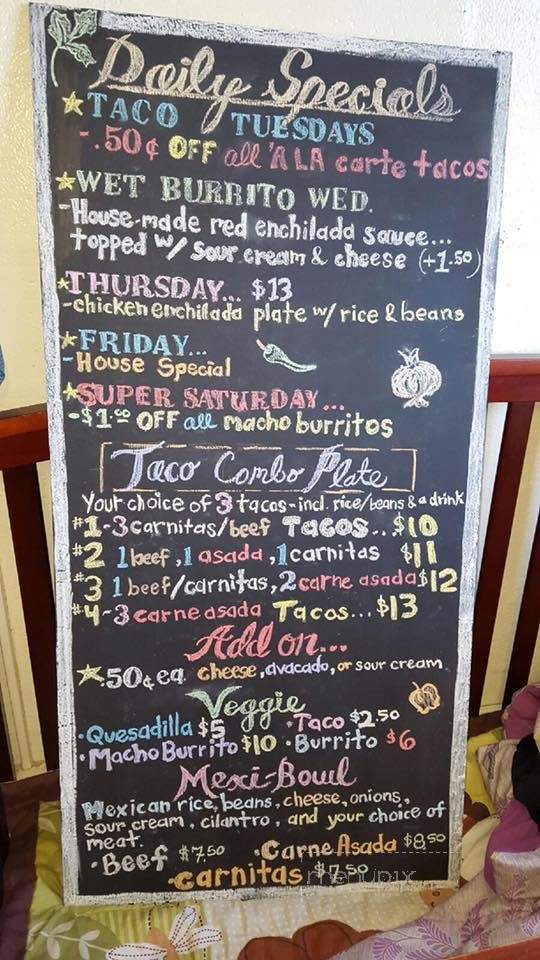 Daily Specials
TACO TUESDAYS
-.50¢ OFF all 'A LA carte tacos
WET BURRITO WED.
-House-made red enchilada sauce...
topped w/ sour cream & cheese (+1.50)
THURSDAY... $13
-chicken enchilada plate w/ rice & beans
FRIDAY...
-House Special
SUPER SATURDAY...
-$1.00 OFF all macho burritos
Taco Combo Plate
Your choice of 3 tacos-incl. rice/beans & a drink
#1-3 carnitas/beef Tacos...$10
#2 1 beef, 1 asada, 1 carnitas $11
#3 1 beef/carnitas, 2 carne asada $12
#4-3 carne asada Tacos...$13
Add on...
.50¢ ea. cheese, avacado, or sour cream
Veggie
·Quesadilla $5 ·Taco $2.50
·Macho Burrito $10 ·Burrito $6
Mexi-Bowl
Mexican rice, beans, cheese, onions,
sour cream, cilantro, and your choice of
meat.
·Beef $7.50 ·Carne Asada $8.50
·Carnitas $7.50
menupix